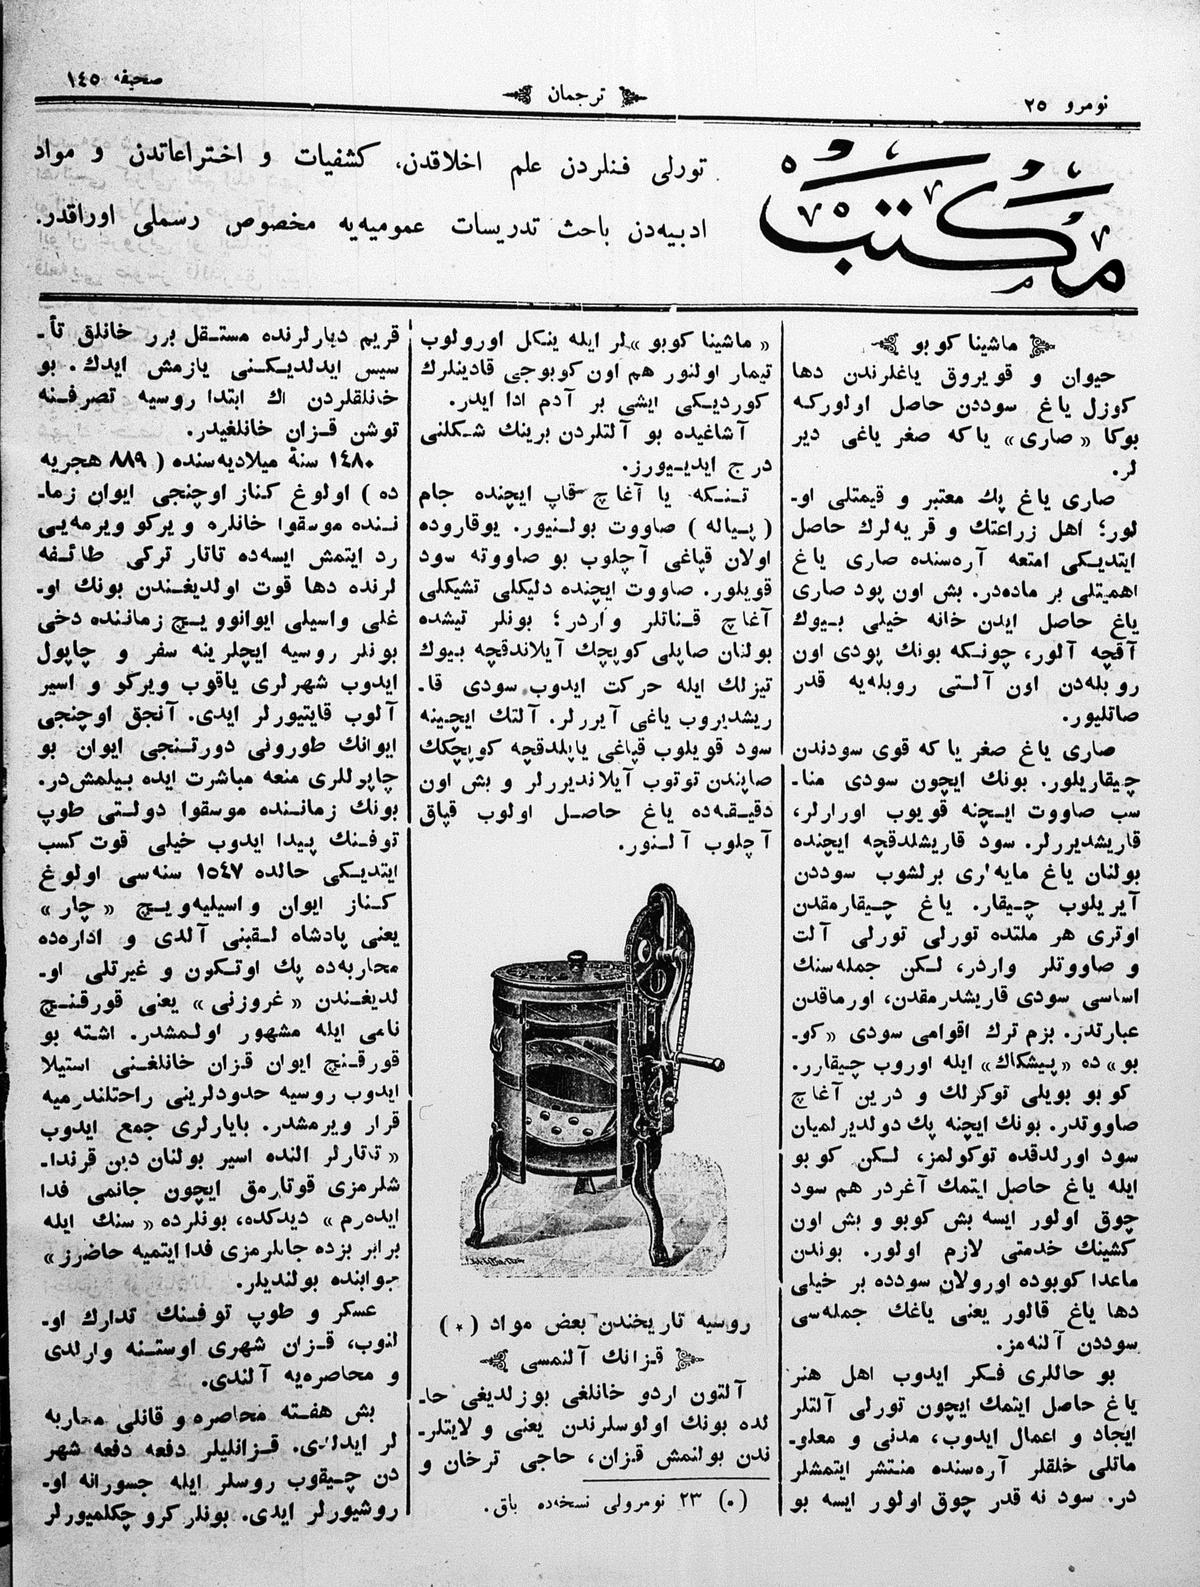 نومرو ٢٥
ترجمان
صحیفه ١٤٥
مكتب
تورلی فنلردن علم اخلاقدن، كشفیات و اختراعاتدن و مواد
ادبیه‌دن باحث تدریسات عمومیه‌یه مخصوص رسملی اوراقدر.
ماشینا كوبو
حیوان و قویروق یاغلرندن دها
كوزل یاغ سوددن حاصل اولوركه
بوكا «صاری» یاكه صغر یاغی دیر
لر.
صاری یاغ پك معتبر و قیمتلی او-
لور؛ اهل زراعتك و قریه‌لرك حاصل
ایتدیكی امتعه آره‌سنده صاری یاغ
اهمیتلی بر ماده‌در. بش اون پود صاری
یاغ حاصل ایدن خانه خیلی بیوك
آقچه آلور، چونكه بونك پودی اون
روبله‌دن اون آلتی روبله‌یه قدر
صاتلیور.
صاری یاغ صغر یاكه قوی سودندن
چیقاریلور. بونك ایچون سودی منا-
سب صاووت ایچنه قویوب اورارلر،
قاریشدیررلر. سود قاریشلدقچه ایچنده
بولنان یاغ مایه‌لری برلشوب سوددن
آیریلوب چیقار. یاغ چیقارمقدن
اوتری هر ملتده تورلی تورلی آلت
و صاووتلر واردر، لكن جمله‌سنك
اساسی سودی قاریشدرمقدن، اورماقدن
عبارتدر. بزم ترك اقوامی سودی «كو-
بو» ده «پیشكاك» ایله اوروب چیقارر.
كوبو بویلی توكرلك و درین آغاچ
صاووتدر. بونك ایچنه پك دولدیرلمیان
سود اورلدقده توكولمز، لكن كوبو
ایله یاغ حاصل ایتمك آغردر هم سود
چوق اولور ایسه بش كوبو و بش اون
كشینك خدمتی لازم اولور. بوندن
ماعدا كوبوده اورولان سودده بر خیلی
دها یاغ قالور یعنی یاغك جمله‌سی
سوددن آلنه‌مز.
بو حاللری فكر ایدوب اهل هنر
یاغ حاصل ایتمك ایچون تورلی آلتلر
ایجاد و اعمال ایدوب، مدنی و معلو-
ماتلی خلقلر آره‌سنده منتشر ایتمشلر
در. سود نه قدر چوق اولور ایسه بو
«ماشینا كوبو» لر ایله ینكل اورولوب
تیمار اولنور هم اون كوبوجی قادینلرك
كوردیكی ایشی بر آدم ادا ایدر.
آشاغیده بو آلتلردن برینك شكلنی
درج ایدییورز.
تنكه یا آغاچ قاپ ایچنده جام
(پیاله) صاووت بولنیور. یوقاروده
اولان قپاغی آچلوب بو صاووته سود
قویلور. صاووت ایچنده دلیكلی تشیكلی
آغاچ قناتلر واردر؛ بونلر تیشده
بولنان صاپلی كوپچك آیلاندقچه بیوك
تیزلك ایله حركت ایدوب سودی قا-
ریشدیروب یاغی آیررلر. آلتك ایچینه
سود قویلوب قپاغی یاپلدقچه كوپچكك
صاپندن توتوب آیلاندیررلر و بش اون
دقیقه‌ده یاغ حاصل اولوب قپاق
آچلوب آلنور.
روسیه تاریخندن بعض مواد (*)
قزانك آلنمسی
آلتون اردو خانلغی بوزلدیغی حا-
لده بونك اولوسلرندن یعنی ولایتلر-
ندن بولنمش قزان، حاجی ترخان و
(٠) ٢٣ نومرولی نسخه‌ده باق.
قریم دیارلرنده مستقل برر خانلق تأ-
سیس ایدلدیكنی یازمش ایدك. بو
خانلقلردن اك ابتدا روسیه تصرفنه
توشن قزان خانلغیدر.
١٤٨٠ سنۀ میلادیه‌سنده (٨٨٩ هجریه
ده) اولوغ كناز اوچنجی ایوان زما-
ننده موسقوا خانلره ویركو ویرمه‌یی
رد ایتمش ایسه‌ده تاتار تركی طائفه
لرنده دها قوت اولدیغندن بونك او-
غلی واسیلی ایوانوویچ زماننده دخی
بونلر روسیه ایچلرینه سفر و چاپول
ایدوب شهرلری یاقوب ویركو و اسیر
آلوب قایتیورلر ایدی. آنجق اوچنجی
ایوانك طورونی دورتنجی ایوان بو
چاپوللری منعه مباشرت ایده بیلمش‌در.
بونك زماننده موسقوا دولتی طوپ
توفنك پیدا ایدوب خیلی قوت كسب
ایتدیكی حالده ١٥٤٧ سنه‌سی اولوغ
كناز ایوان واسیلیه‌ویچ «چار»
یعنی پادشاه لقبنی آلدی و اداره‌ده
محاربه‌ده پك اوتكون و غیرتلی او-
لدیغندن «غروزنی» یعنی قورقنچ
نامی ایله مشهور اولمشدر. اشته بو
قورقنچ ایوان قزان خانلغنی استیلا
ایدوب روسیه حدودلرینی راحتلندرمیه
قرار ویرمشدر. بایارلری جمع ایدوب
«تاتارلر النده اسیر بولنان دین قرندا-
شلرمزی قوتارمق ایچون جانمی فدا
ایده‌رم» دیدكده، بونلرده «سنك ایله
برابر بزده جانلرمزی فدا ایتمیه حاضرز»
جوابنده بولندیلر.
عسكر و طوپ توفنك تدارك او-
لنوب، قزان شهری اوستنه واردلدی
و محاصره‌یه آلندی.
بش هفته محاصره و قانلی محاربه
لر ایدلدی. قزانلیلر دفعه دفعه شهر
دن چیقوب روسلر ایله جسورانه او-
روشیورلر ایدی. بونلر كرو چكلمیورلر